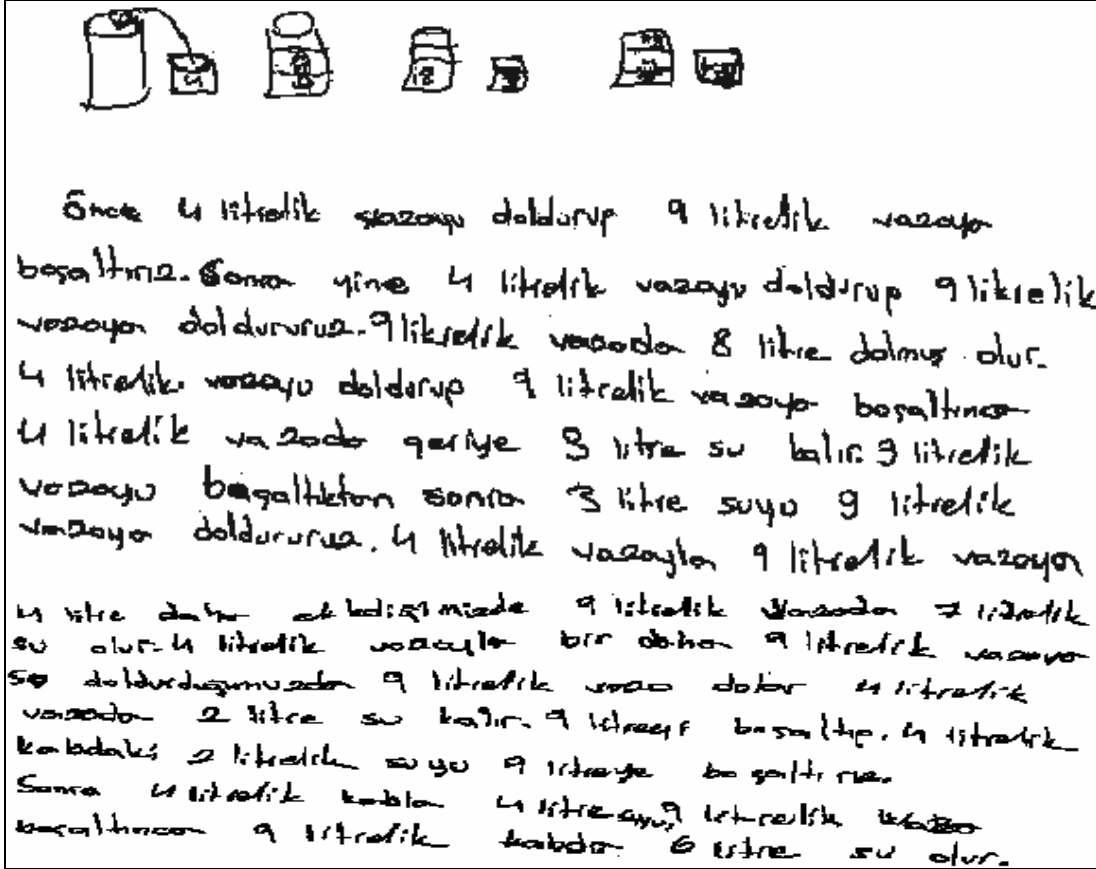 4
Önce 4 litrelik vazoyu doldurup 9 litrelik vazoya
boşaltırız. Sonra yine 4 litrelik vazoyu doldurup 9 likrelik
vazoya doldururuz. 9 likrelik vazoda 8 litre dolmuş olur.
4 litrelik vazoyu doldurup 9 litrelik vazoya boşaltınca
4 litrelik vazoda geriye 3 litre su kalır. 9 litrelik
vazoyu boşalttıkton sonra 3 litre suyu 9 litrelik
vazoya doldururuz. 4 litrelik vazoyla 9 litrelik vazoya
4 litre daha 9 litrelik vazoda 7 litrelik
su olur. 4 litrelik vazoyla bir daha 9 litrelik vazoya
su doldurduğumuzda 9 litrelik vazo dolar 4 litrelik
vazoda 2 litre su kalır. 9 litreyi boşaltıp. 4 litrelik
kabdaki 2 litrelik suyu 9 litreye boşaltırız.
Sonra 4 litrelik kabla 4 litre suyu 9 litrelik
boşaltınca 9 litrelik kabda 6 litre su olur.